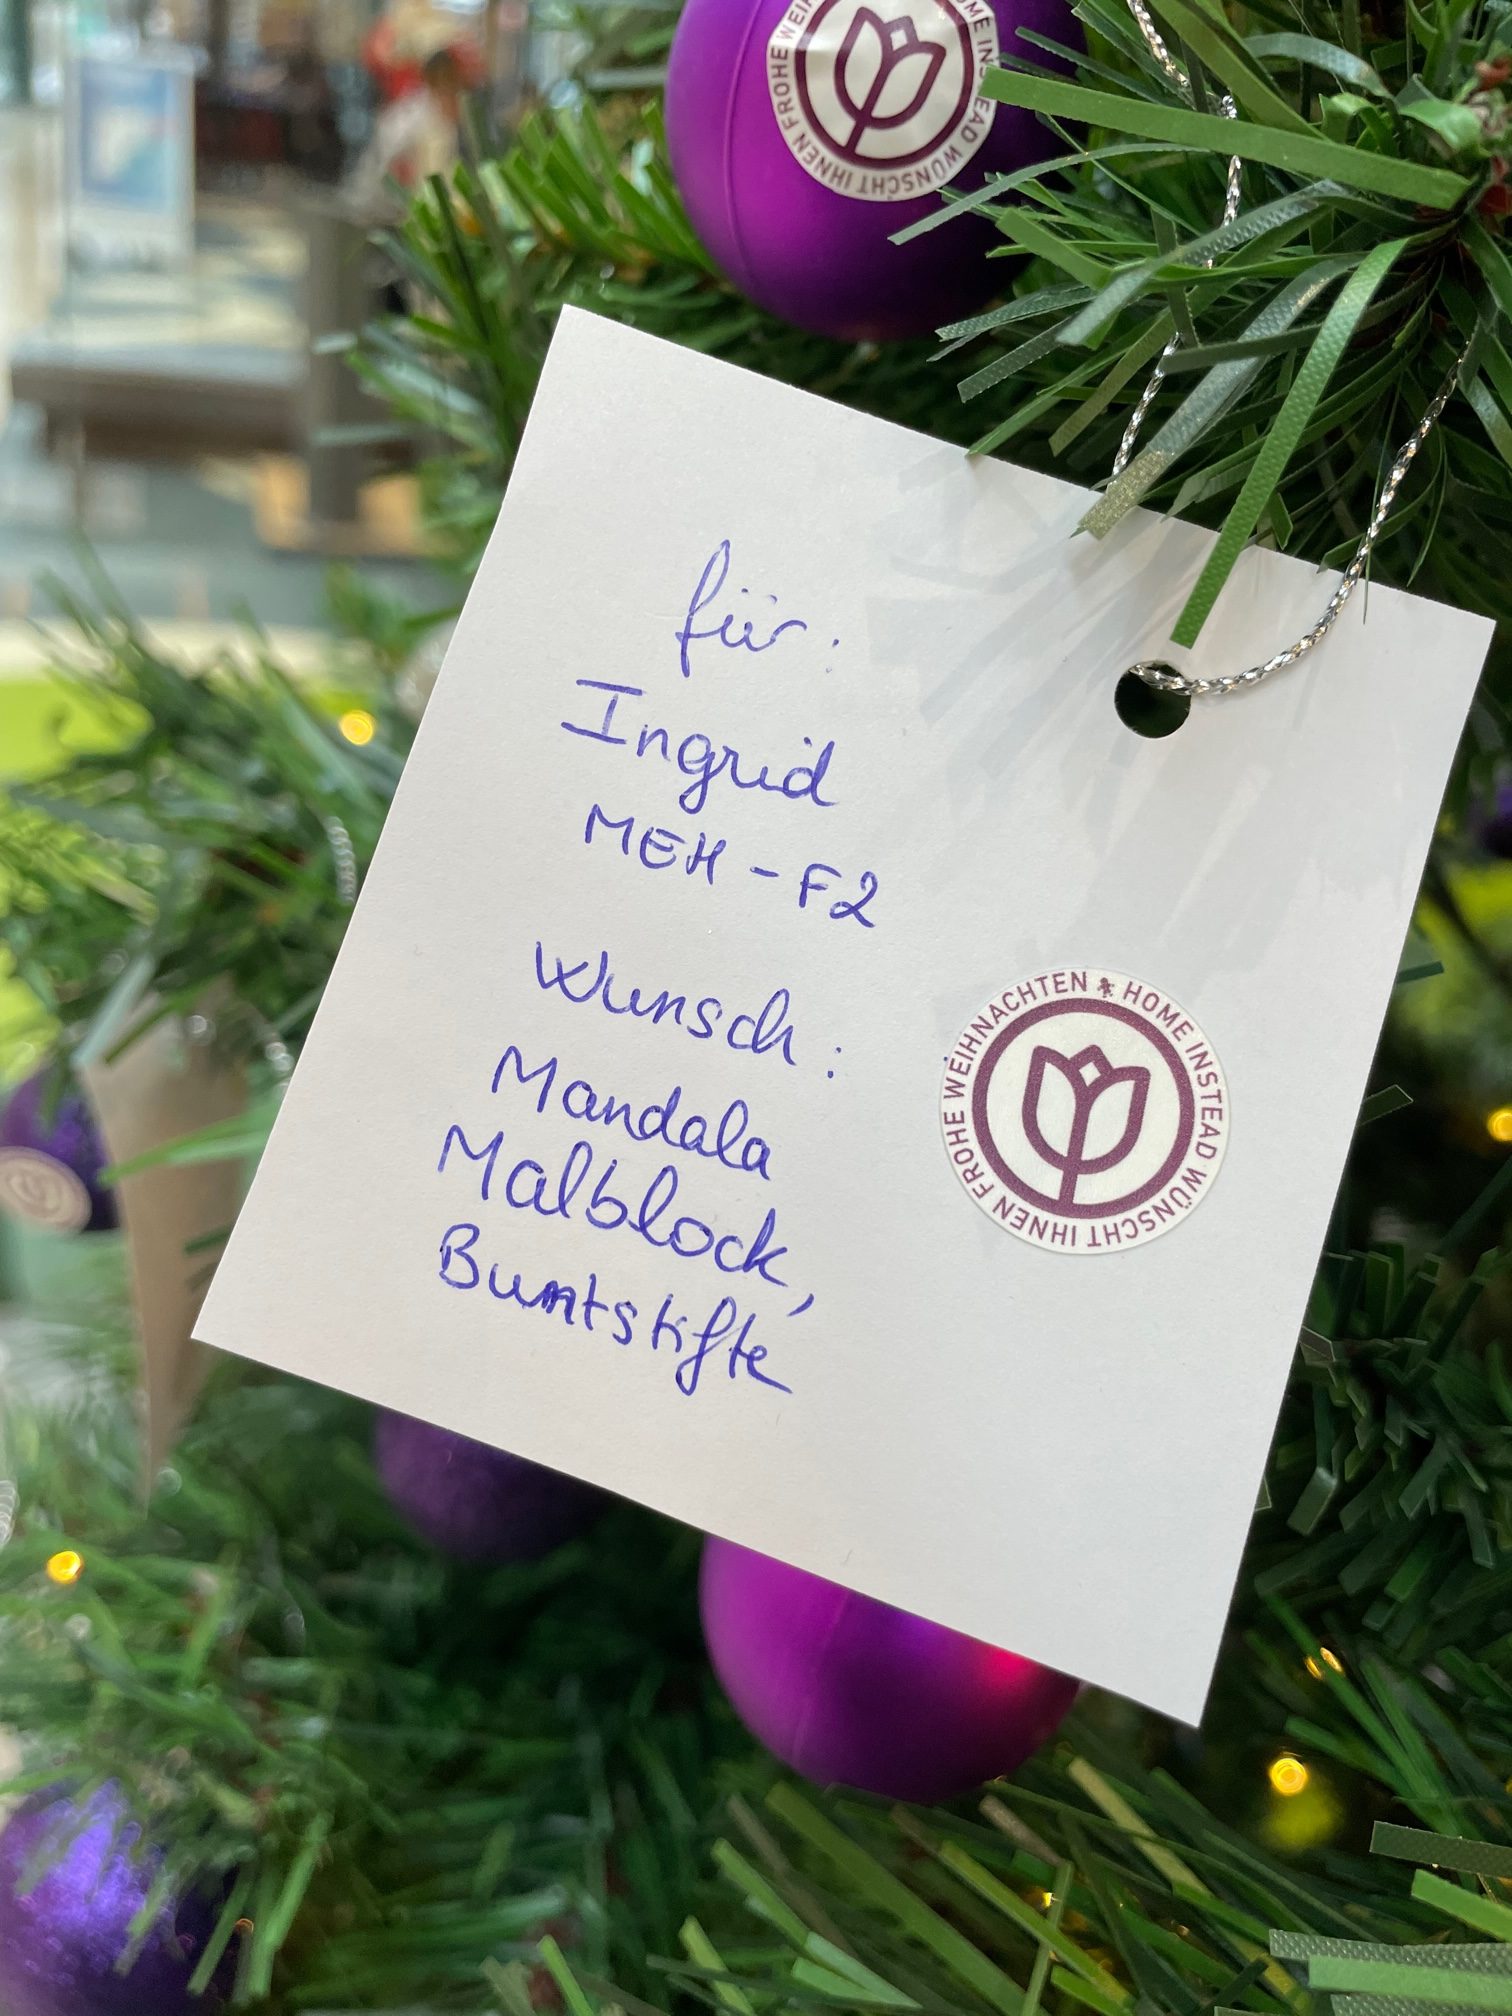 HOME INSTEAD WÜNSCHT IHNEN FROHE
für:
Ingrid
MEH - F2
Wunsch:
Mandala
Malblock,
Buntstifte
HOME INSTEAD WÜNSCHT IHNEN FROHE WEIHNACHTEN